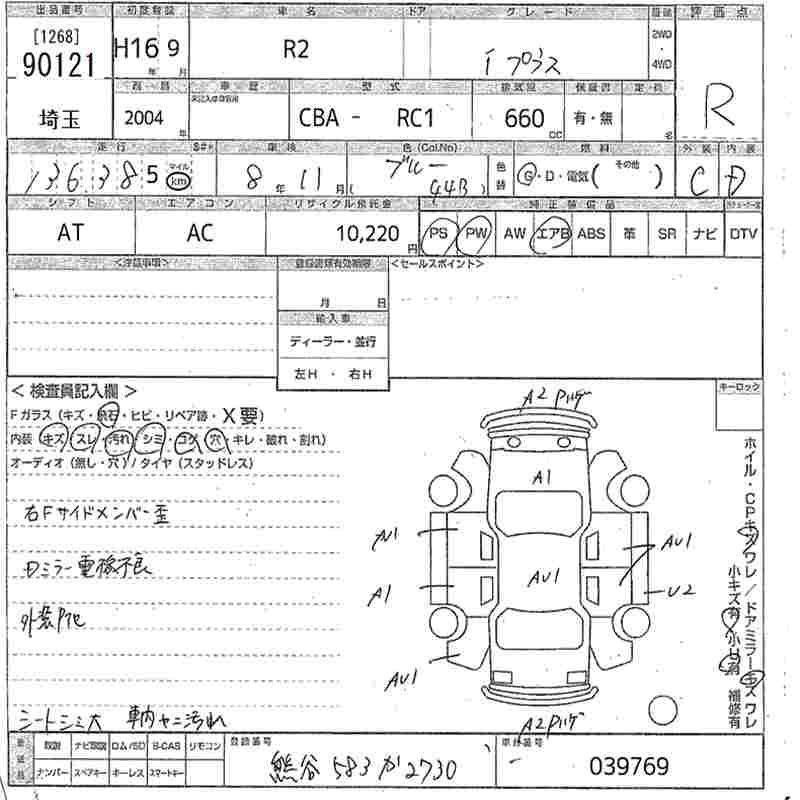 出品番号 初度登録 車名 ドア グレード 駆動 評価点
[1268] 90121 H16 9 年 月 R2 i プラス 2WD ・ 4WD R
埼玉 年式 2004 年 車歴 型式 CBA - RC1 排気量 660 cc 保証書 有・無 定員 名
走行 S#* 車検 色(Col.No) 燃料 外装 内装
136385 マイル km 8 年 11 月 ブルー ( 44B ) 色替 G・D・電気( その他 ) C D
シフト エアコン リサイクル預託金 純正装備品
AT AC 10,220 円 PS PW AW エアB ABS 革 SR ナビ DTV
<注意事項> 登録書類有効期限 <セールスポイント>
月 日
輸入車
ディーラー・並行
左H ・ 右H
< 検査員記入欄 > キーロック
Fガラス (キズ・飛石・ヒビ・リペア跡・X要)
内装 (キズ・スレ・汚れ・シミ・コゲ・穴・キレ・破れ・割れ)
オーディオ (無し・穴) / タイヤ (スタッドレス)
右Fサイドメンバー歪
Dミラー電格不良
外装P他
シートシミ大 車内ヤニ汚れ
A2
A1
AU1
AU1
A1
U2
AU1
A2
ホイル・CPキズワレ/ドアミラーキズワレ
小キズ有 小H有 補修有
取説 ナビ取説 ロム/SD B-CAS リモコン 登録番号 車台番号
ナンバー スペアキー キーレス スマートキー 熊谷 583 か 2730 039769